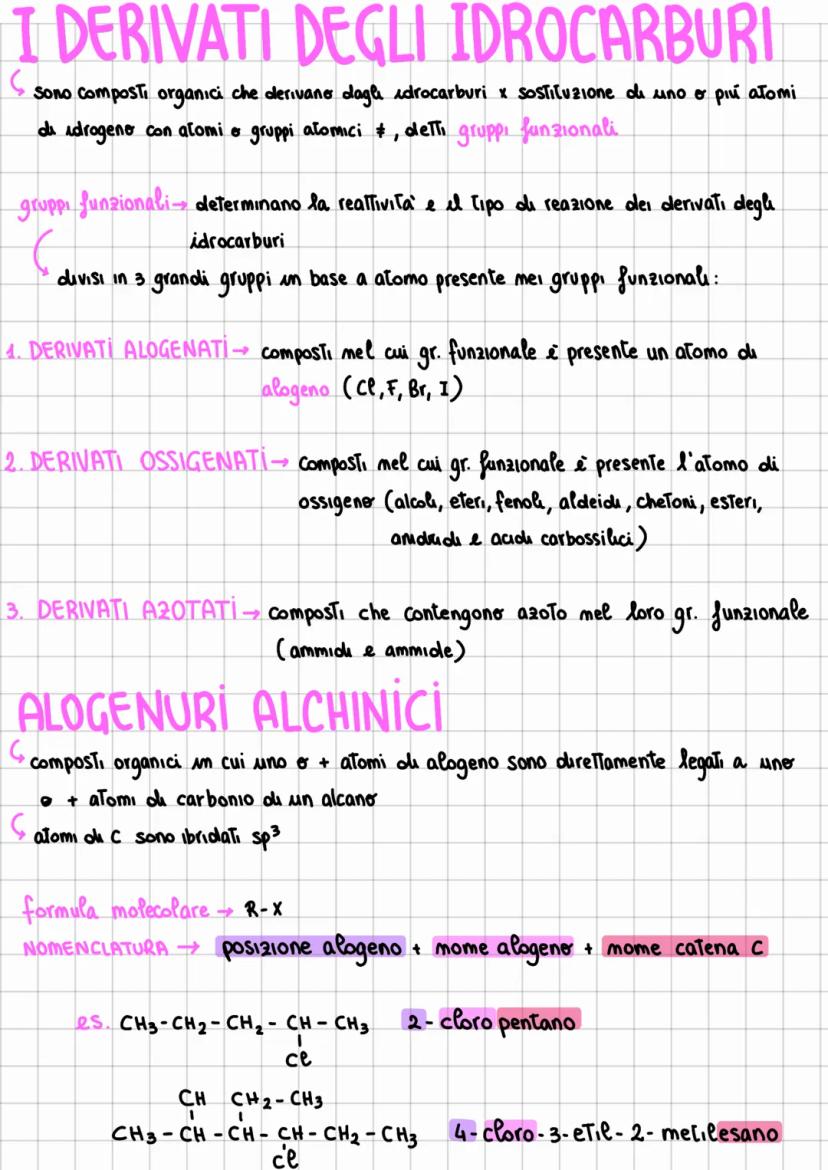 I DERIVATI DEGLI IDROCARBURI
sono composti organici che derivano dagli idrocarburi x sostituzione di uno o piú atomi
di idrogeno con atomi o gruppi atomici ≠, detti gruppi funzionali
gruppi funzionali → determinano la reattività e il tipo di reazione dei derivati degli
idrocarburi
divisi in 3 grandi gruppi in base a atomo presente nei gruppi funzionali:
1. DERIVATI ALOGENATI → composti nel cui gr. funzionale è presente un atomo di
alogeno (Cl, F, Br, I)
2. DERIVATI OSSIGENATI → composti nel cui gr. funzionale è presente l'atomo di
ossigeno (alcoli, eteri, fenoli, aldeidi, chetoni, esteri,
anidridi e acidi carbossilici)
3. DERIVATI AZOTATI → composti che contengono azoto nel loro gr. funzionale
(ammidi e ammide)
ALOGENURI ALCHINICI
composti organici in cui uno o + atomi di alogeno sono direttamente legati a uno
o + atomi di carbonio di un alcano
atomi di C sono ibridati sp³
formula molecolare → R-X
NOMENCLATURA → posizione alogeno + nome alogeno + nome catena C
es. CH3-CH2-CH2-CH-CH3 2-cloropentano
Cl
CH CH2-CH3
CH3-CH-CH-CH-CH2-CH3 4-cloro-3-etil-2-metilesano
Cl